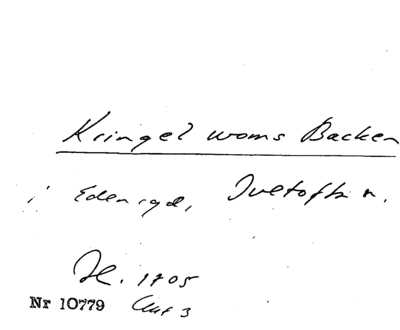 Kringel woms Backen
i Edenryd, Ivetofta n.
H. 1705
Nr 10779